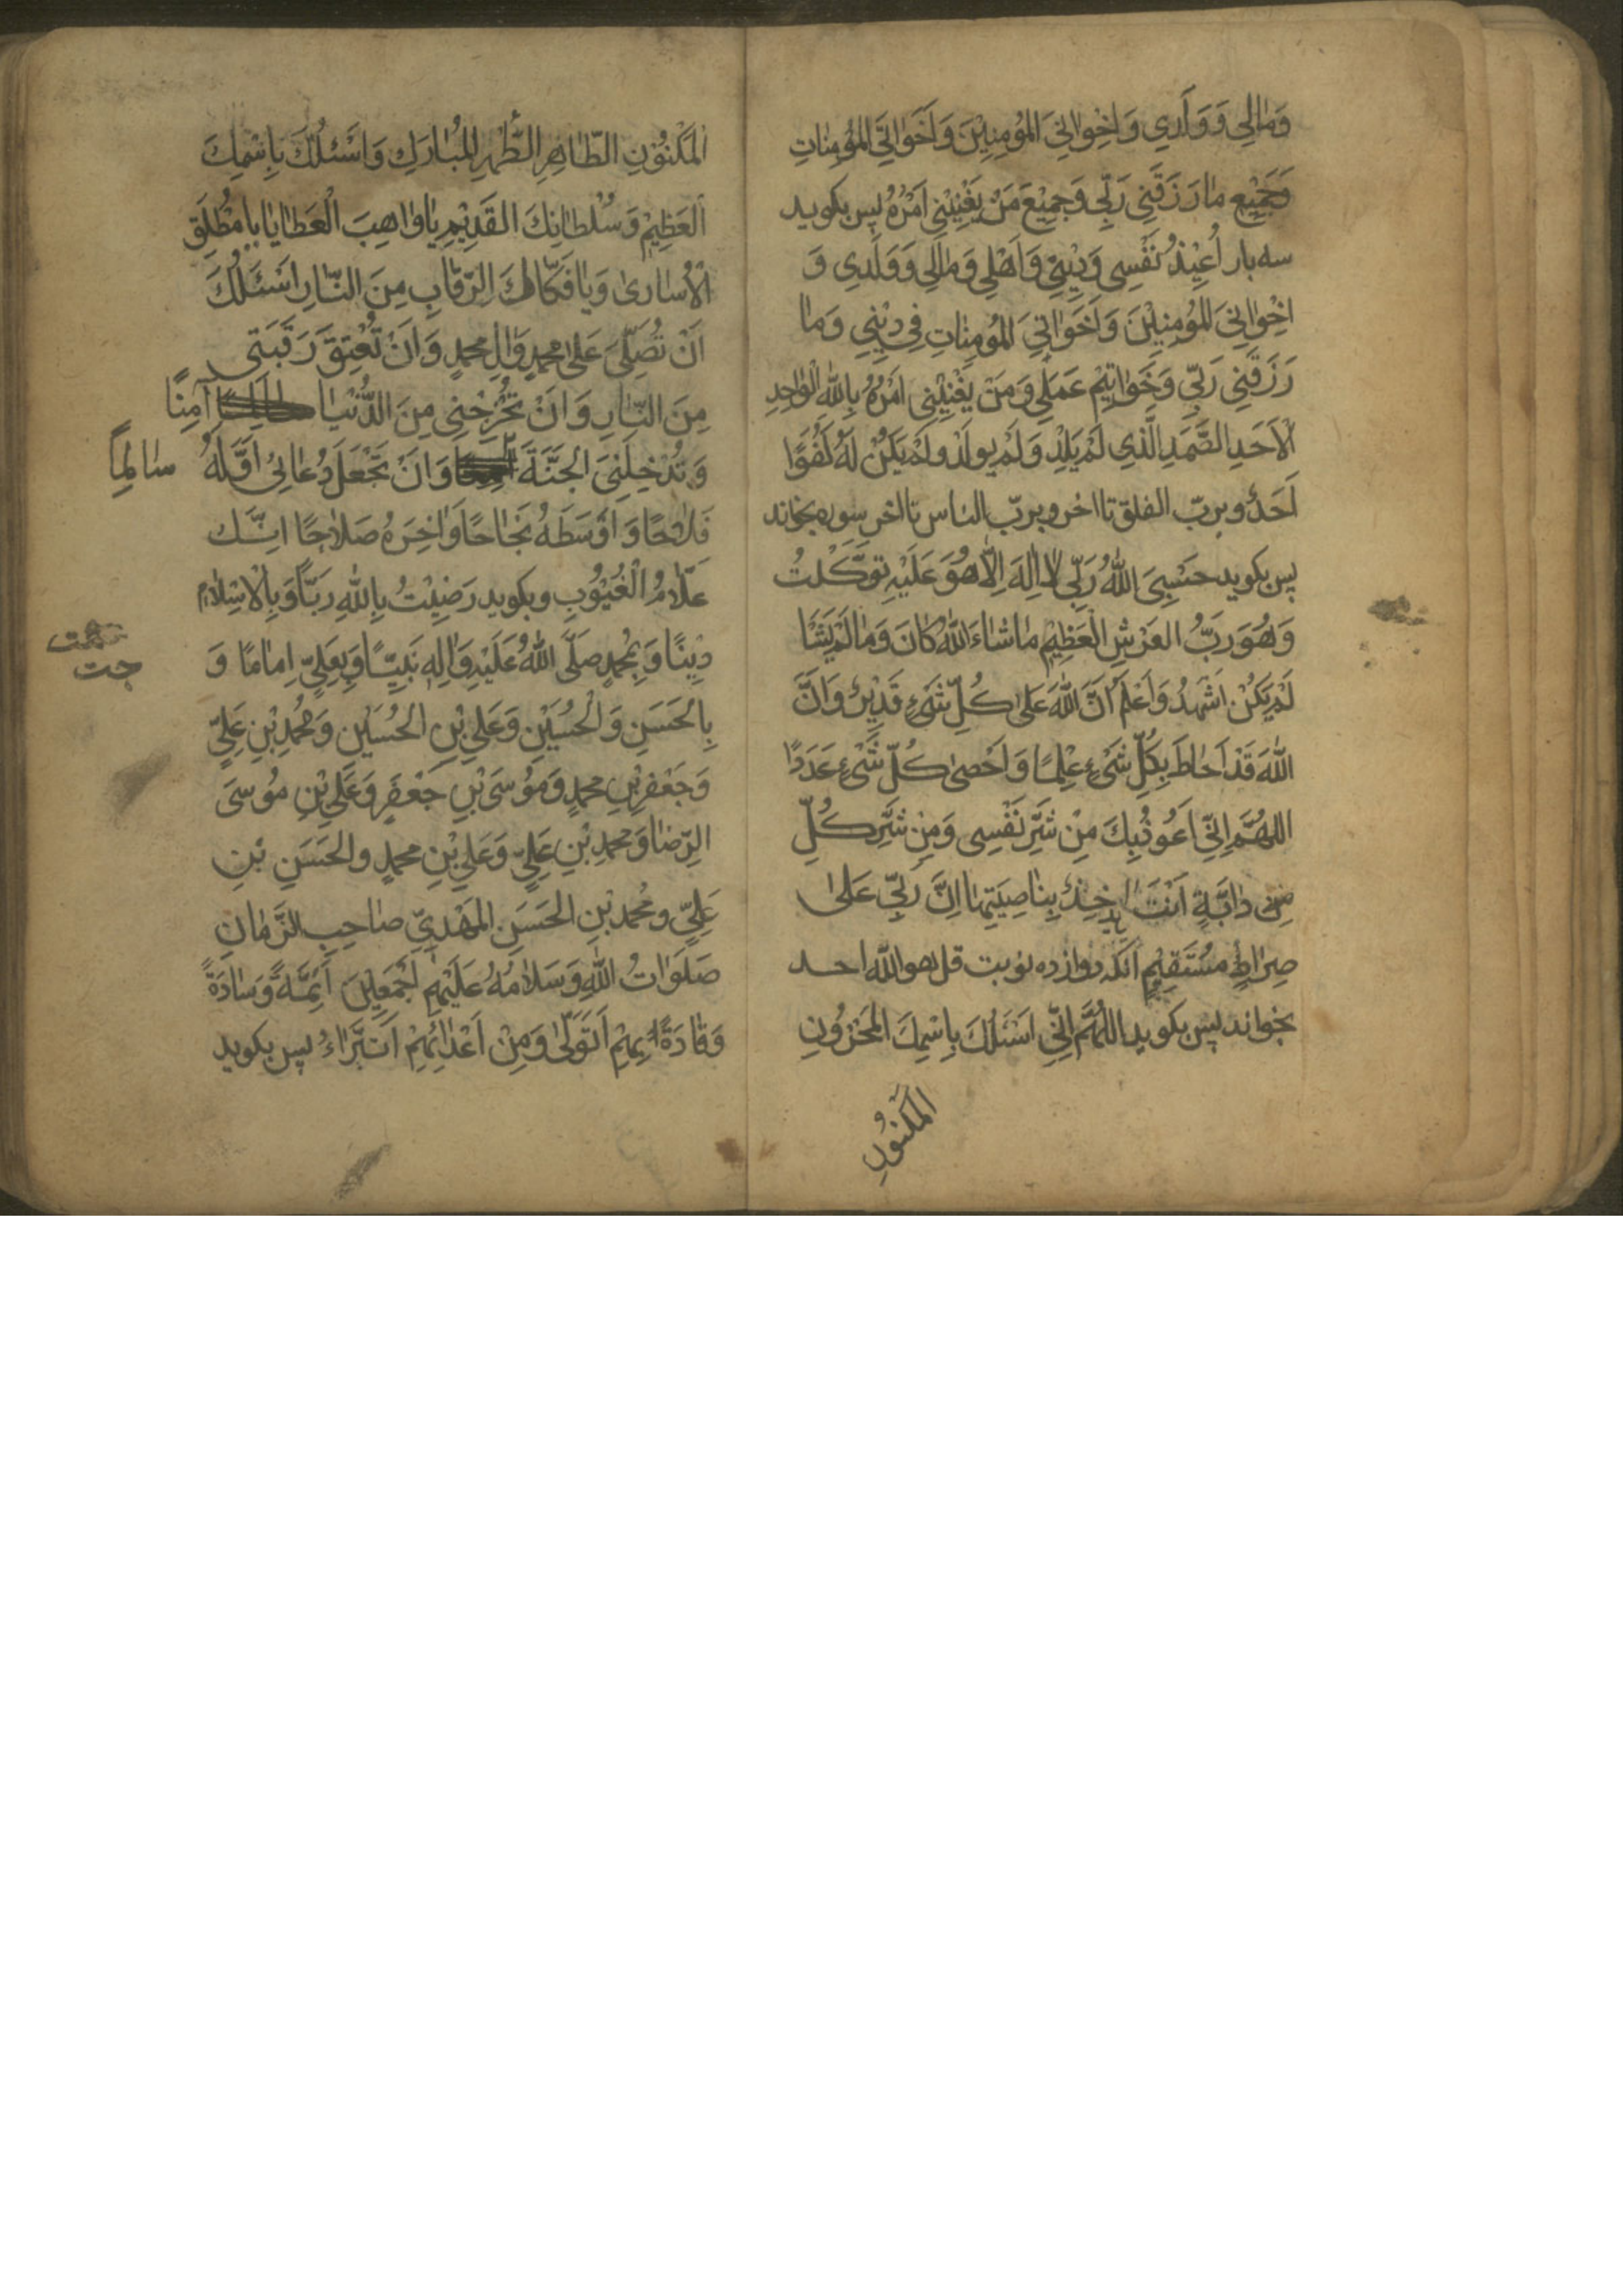 وَمَالِي وَوَلَدِي وَاِخْوَانِيَ المُؤمِنِيْنَ وَاَخَوَاتِيَ المُؤمِنَاتِ
وَجَمِيْعِ مَا رَزَقَنِي رَبِّي وَجَمِيْعَ مَنْ يَعْنِيْنِي اَمْرُهُ پس بكويد
سه بار اُعِيْذُ نَفْسِي وَدِيْنِي وَاَهْلِي وَمَالِي وَوَلَدِي وَ
اِخْوَانِيَ المُؤمِنِيْنَ وَاَخَوَاتِيَ المُؤمِنَاتِ فِي دِيْنِي وَمَا
رَزَقَنِي رَبِّي وَخَوَاتِيْمِ عَمَلِي وَمَنْ يَعْنِيْنِي اَمْرُهُ بِاللهِ الْوَاحِدِ
الْاَحَدِ الصَّمَدِ الَّذِي لَمْ يَلِدْ وَلَمْ يُولَدْ وَلَمْ يَكُنْ لَهُ كُفُوًا
اَحَدٌ وبربّ الفلق تا اخر وبربّ الناس تا اخر سوره بخواند
پس بكويد حَسْبِيَ اللهُ رَبِّي لا اِلهَ اِلَّا هُوَ عَلَيْهِ تَوَكَّلْتُ
وَهُوَ رَبُّ العَرْشِ الْعَظِيْمِ مَا شَاءَ اللهُ كَانَ وَمَا لَمْ يَشَا
لَمْ يَكُنْ اَشْهَدُ وَاَعْلَمُ اَنَّ اللهَ عَلى كُلِّ شَيْءٍ قَدِيْرٌ وَاَنَّ
اللهَ قَدْ اَحَاطَ بِكُلِّ شَيْءٍ عِلْمًا وَاَحْصى كُلَّ شَيْءٍ عَدَدًا
اللهُمَّ اِنِّي اَعُوذُ بِكَ مِنْ شَرِّ نَفْسِي وَمِنْ شَرِّ كُلِّ
دَابَّةٍ اَنْتَ اخِذٌ بِنَاصِيَتِهَا اِنَّ رَبِّي عَلى
صِرَاطٍ مُسْتَقِيْمٍ آنكه دوازده نوبت قل هو الله احد
بخواند پس بكويد اللهُمَّ اِنِّي اَسْئَلُكَ بِاسْمِكَ المَخْزُونِ
المَكْنُونِ
المَكْنُوْنِ الطَّاهِرِ الطُّهْرِ المُبَارَكِ وَاَسْئَلُكَ بِاسْمِكَ
العَظِيْمِ وَسُلْطَانِكَ القَدِيْمِ يَا وَاهِبَ الْعَطَايَا يَا مُطْلِقَ
الْاُسَارى وَيَا فَكَّاكَ الرِّقَابِ مِنَ النَّارِ اَسْئَلُكَ
اَنْ تُصَلِّيَ عَلى مُحمدٍ وَالِ مُحمدٍ وَاَنْ تُعْتِقَ رَقَبَتِي
مِنَ النَّارِ وَاَنْ تُخْرِجَنِي مِنَ الدُّنْيَا آمِنًا
وَتُدْخِلَنِيَ الْجَنَّةَ وَاَنْ تَجْعَلَ دُعَائِي اَوَّلَهُ سَالِمًا
فَلَاحًا وَاَوْسَطَهُ نَجَاحًا وَاخِرَهُ صَلَاحًا اِنَّكَ
عَلَّامُ الْغُيُوْبِ وبكويد رَضِيْتُ بِاللهِ رَبًّا وَبِالْاِسْلَامِ
دِيْنًا وَبِمُحمدٍ صَلَّى اللهُ عَلَيْهِ وَالِهِ نَبِيًّا وَبِعَلِيٍّ اِمَامًا وَ
بِالحَسَنِ وَالْحُسَيْنِ وَعَلِيِّ بْنِ الحُسَيْنِ وَمُحمدِ بْنِ عَلِيٍّ
وَجَعْفَرِ بْنِ مُحمدٍ وَمُوْسَى بْنِ جَعْفَرٍ وَعَلِيِّ بْنِ مُوسَى
الرِّضَا وَمُحمدِ بْنِ عَلِيٍّ وَعَلِيِّ بْنِ مُحمدٍ والحَسَنِ بْنِ
عَلِيٍّ ومُحمد بْنِ الحَسَنِ المَهْدِيِّ صَاحِبِ الزَّمَانِ
صَلَوَاتُ اللهِ وَسَلَامُهُ عَلَيْهِمْ اَجْمَعِيْنَ اَئِمَّةً وَسَادَةً
وَقَادَةً بِهِمْ اَتَوَلّى وَمِنْ اَعْدَائِهِمْ اَتَبَرَّاءُ پس بكويد